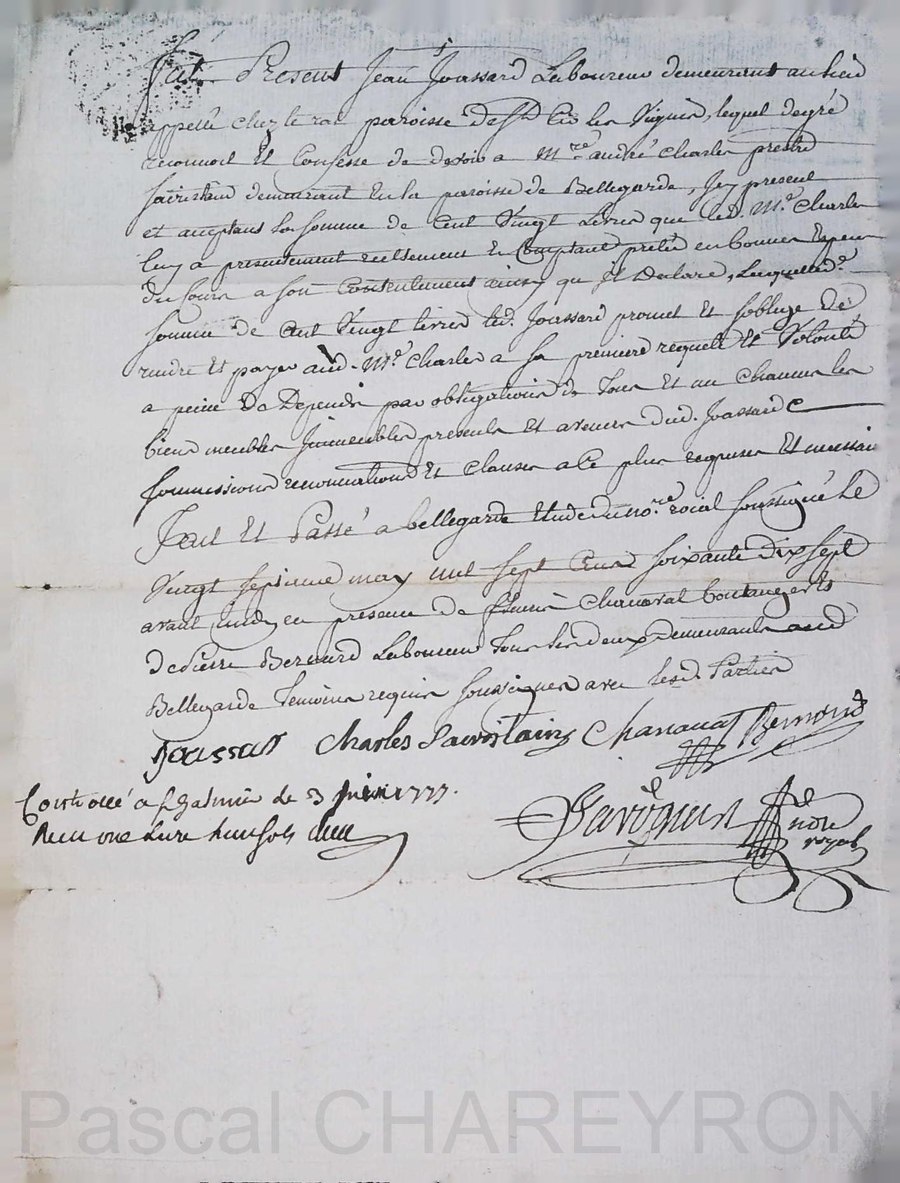 Fut Present Jean Joassard Laboureur demeurant au lieu
appellé chez le rat paroisse de St Cir les Vignes, lequel degré
reconnoit Et Confesse de devoir a Mre andré Charles prestre
sacristain demeurant En la paroisse de Bellegarde, Icy present
et acceptant la somme de Cent Vingt Livres que led. Mre Charles
luy a presentement reellement Et Comptant pretée en bonnes Espences
du Cours a son Contentement ainsy qu il Declare, Laquelled.
somme de Cent Vingt livres led. Joassard promet Et soblige de
rendre Et payer aud. Mre Charles a sa premiere requete Et Volonté
a peine Da Depends par obligations de Tous Et un Chacun les
biens meubles Immeubles presents Et avenirs dud. Joassard
soumissions renonciations Et Clauses a Ce plus requises Et
Fait Et Passé a bellegarde Etude du nore roial soussigné Le
Vingt sept may mil sept Cent soixante dix sept
avant midy en presence de Chanavat boulanger Et
de Pierre Bernard Laboureur Tous les deux demeurants aud
Bellegarde Temoins requis soussignes avec lesd. Parties
Joassard Charles Sacristain Chanavat Bernard
Controllé a St Galmier le 3 juin 1777.
Recu une livre huit sols
nore
royal
Pascal CHAREYRON